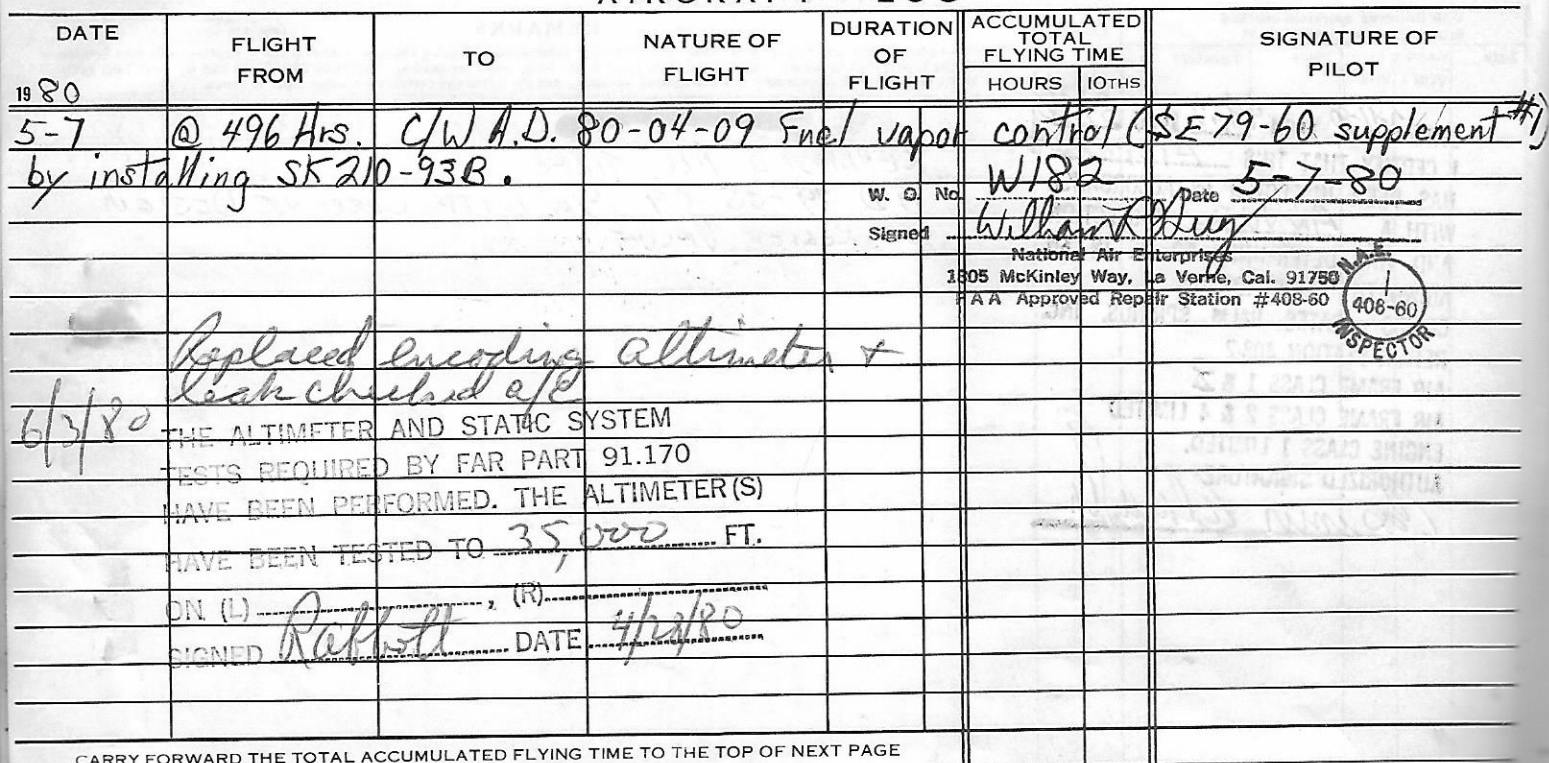 AIRCRAFT LOG
DATE
FLIGHT FROM
TO
NATURE OF FLIGHT
DURATION OF FLIGHT
ACCUMULATED TOTAL FLYING TIME
HOURS 10THS
SIGNATURE OF PILOT
1980
5-7 @ 496 Hrs. C/W A.D. 80-04-09 Fuel vapor control (SE79-60 supplement #1)
by installing SK210-93B.
W. O. No W182 Date 5-7-80
Signed William
National Air Enterprises
1805 McKinley Way, La Verne, Cal. 91750
FAA Approved Repair Station #408-60
N.A.E.
1
408-60
INSPECTOR
Replaced encoding altimeter +
leak checked a/c
6/3/80 THE ALTIMETER AND STATIC SYSTEM
TESTS REQUIRED BY FAR PART 91.170
HAVE BEEN PERFORMED. THE ALTIMETER(S)
HAVE BEEN TESTED TO 35,000 FT.
ON (L) , (R)
SIGNED DATE 4/28/80
CARRY FORWARD THE TOTAL ACCUMULATED FLYING TIME TO THE TOP OF NEXT PAGE